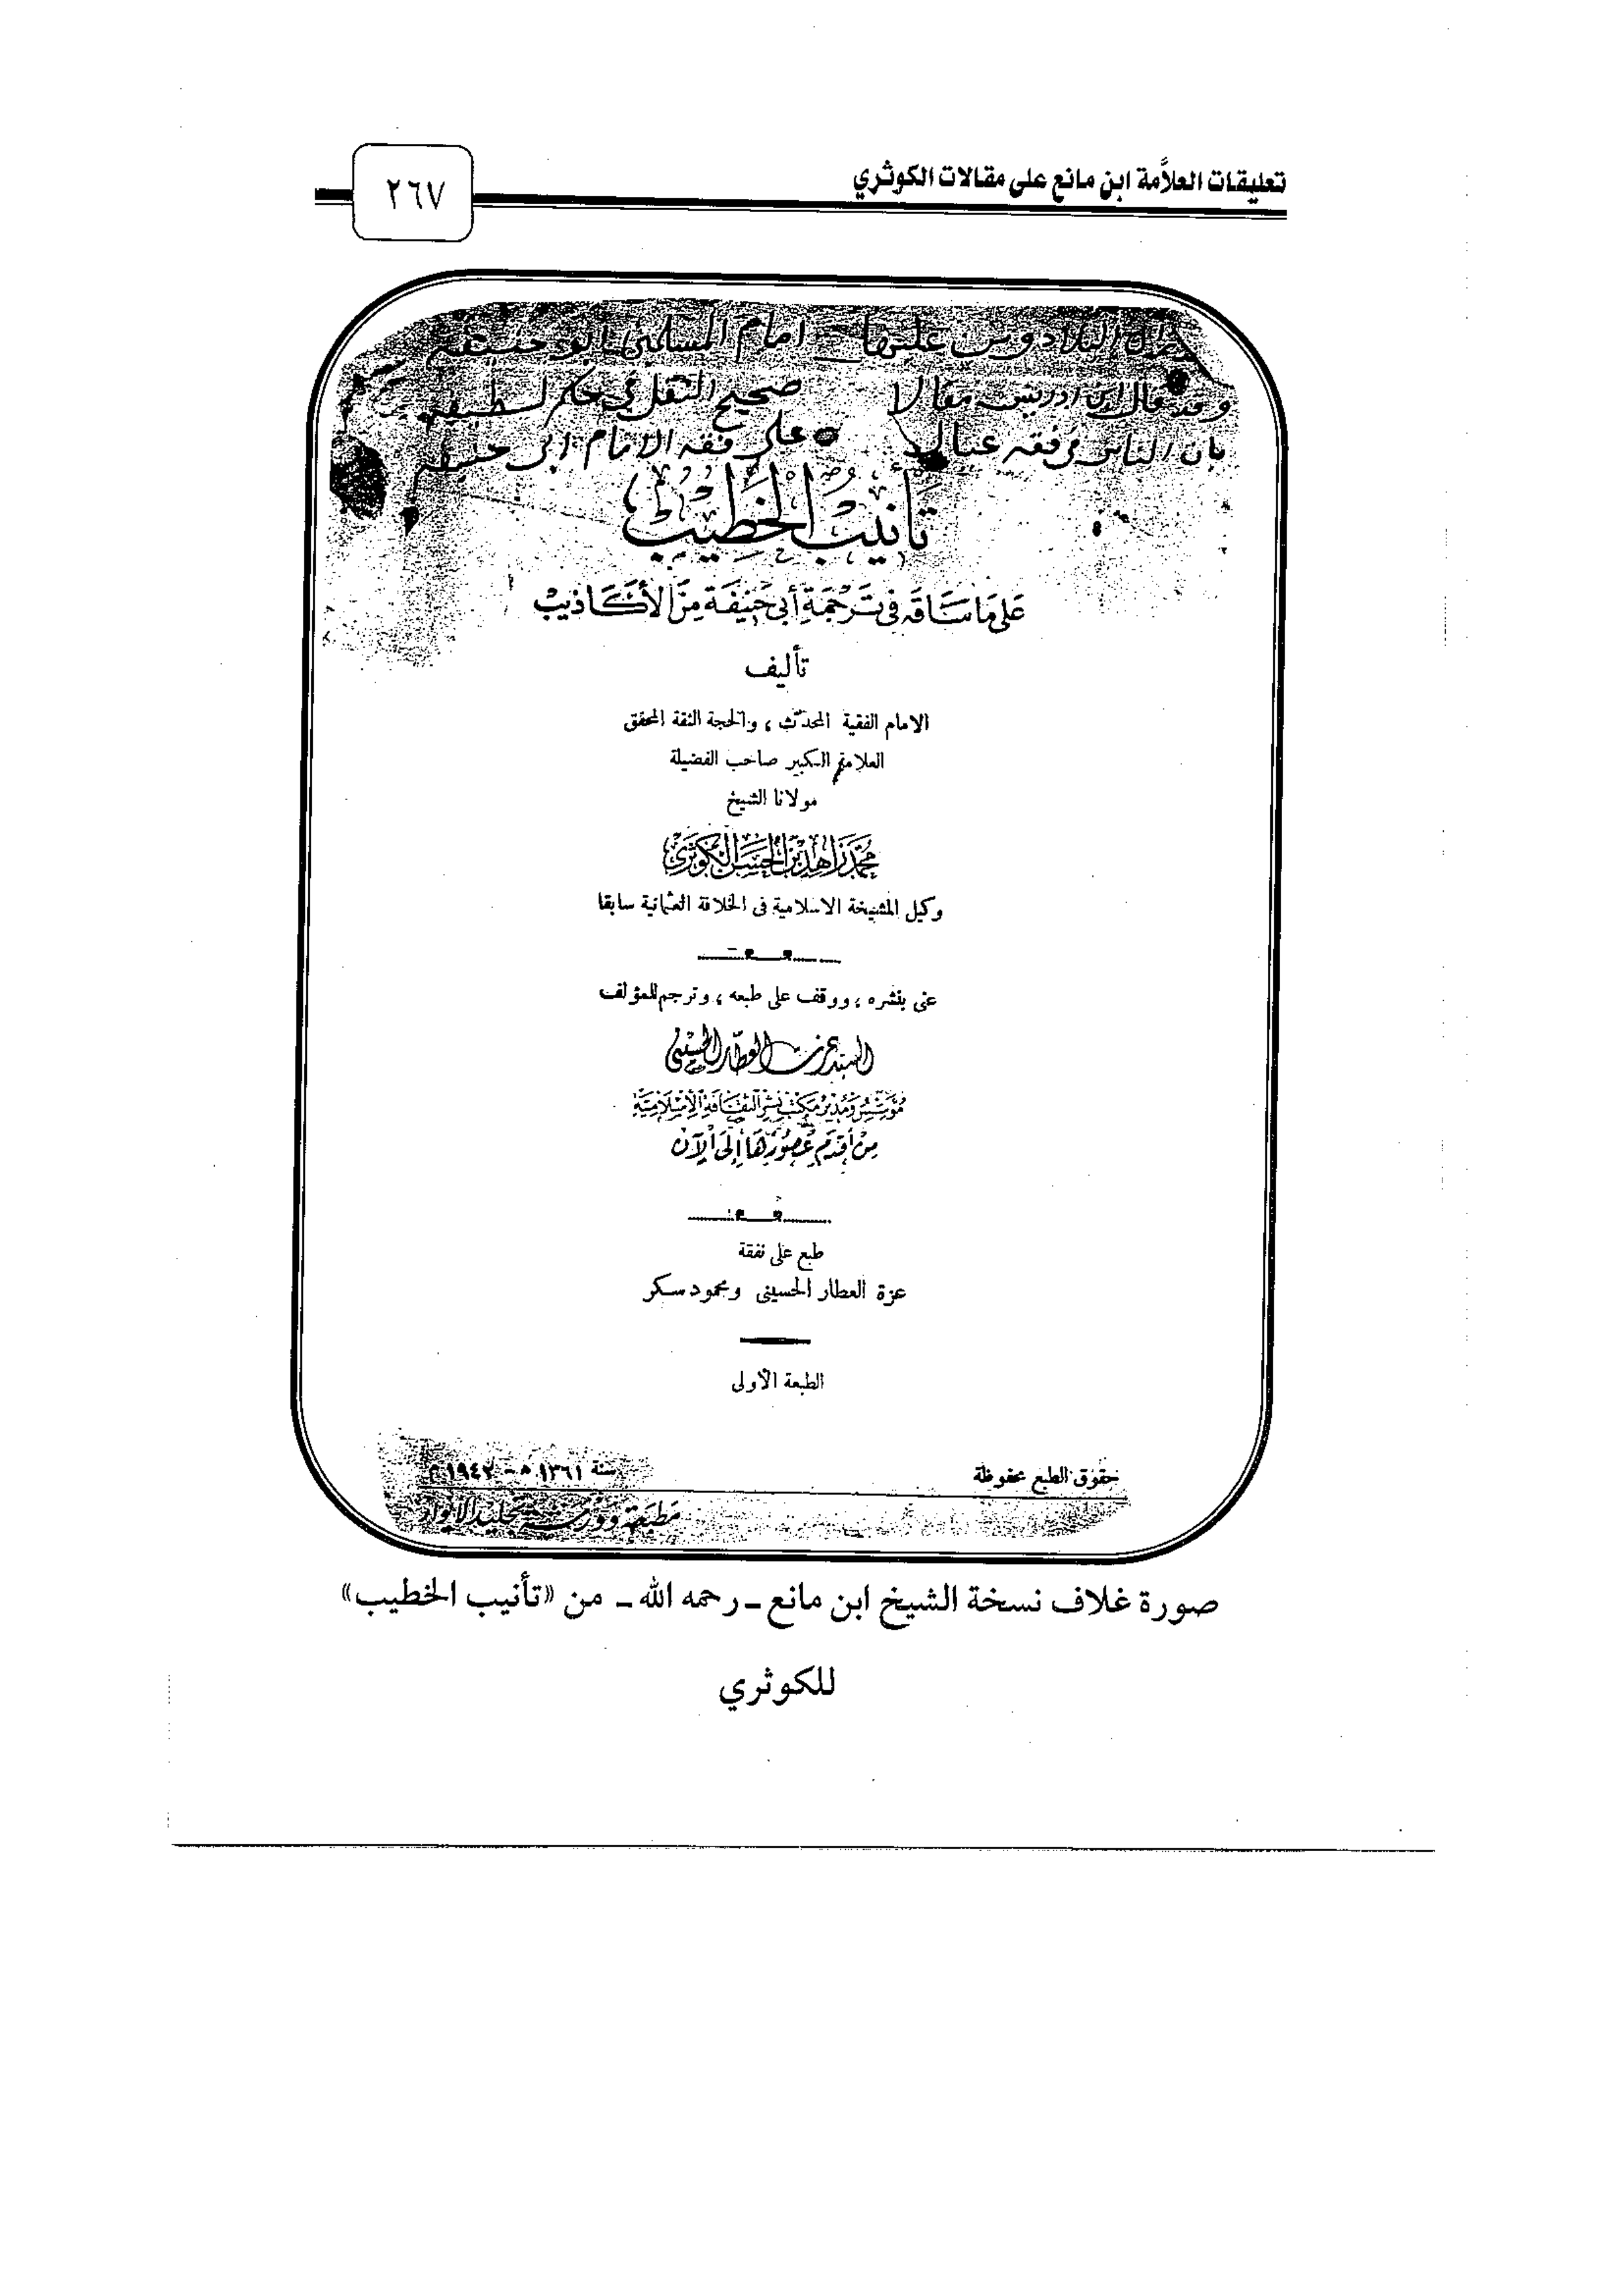 تعليقات العلاَّمة ابن مانع على مقالات الكوثري
٢٦٧
البلاد ومن عليها امام المسلمين ابو حنيفه
وقد قال ابن ادريس مقالا صحيح النقل في حكم لطيفه
بان الناس في فقه عيال على فقه الامام ابى حنيفه
تأنيب الخطيب
على ما ساقه في ترجمة أبي حنيفة من الأكاذيب
تأليف
الامام الفقيه المحدّث ، والحجة الثقة المحقق
العلامة الكبير صاحب الفضيلة
مولانا الشيخ
محمد زاهد بن الحسن الكوثري
وكيل المشيخة الاسلامية فى الخلافة العثمانية سابقا
عنى بنشره ، ووقف على طبعه ، وترجم للمؤلف
السيد عزت العطار الحسيني
مؤسس ومدير مكتب نشر الثقافة الإسلامية
من أقدم عصورها إلى الآن
طبع على نفقة
عزة العطار الحسينى ومحمود سكر
الطبعة الأولى
حقوق الطبع محفوظة
سنة ١٣٦١ ه - ١٩٤٢ م
مطبعة وورشة تجليد الانوار
صورة غلاف نسخة الشيخ ابن مانع ـ رحمه الله ـ من «تأنيب الخطيب»
للكوثري